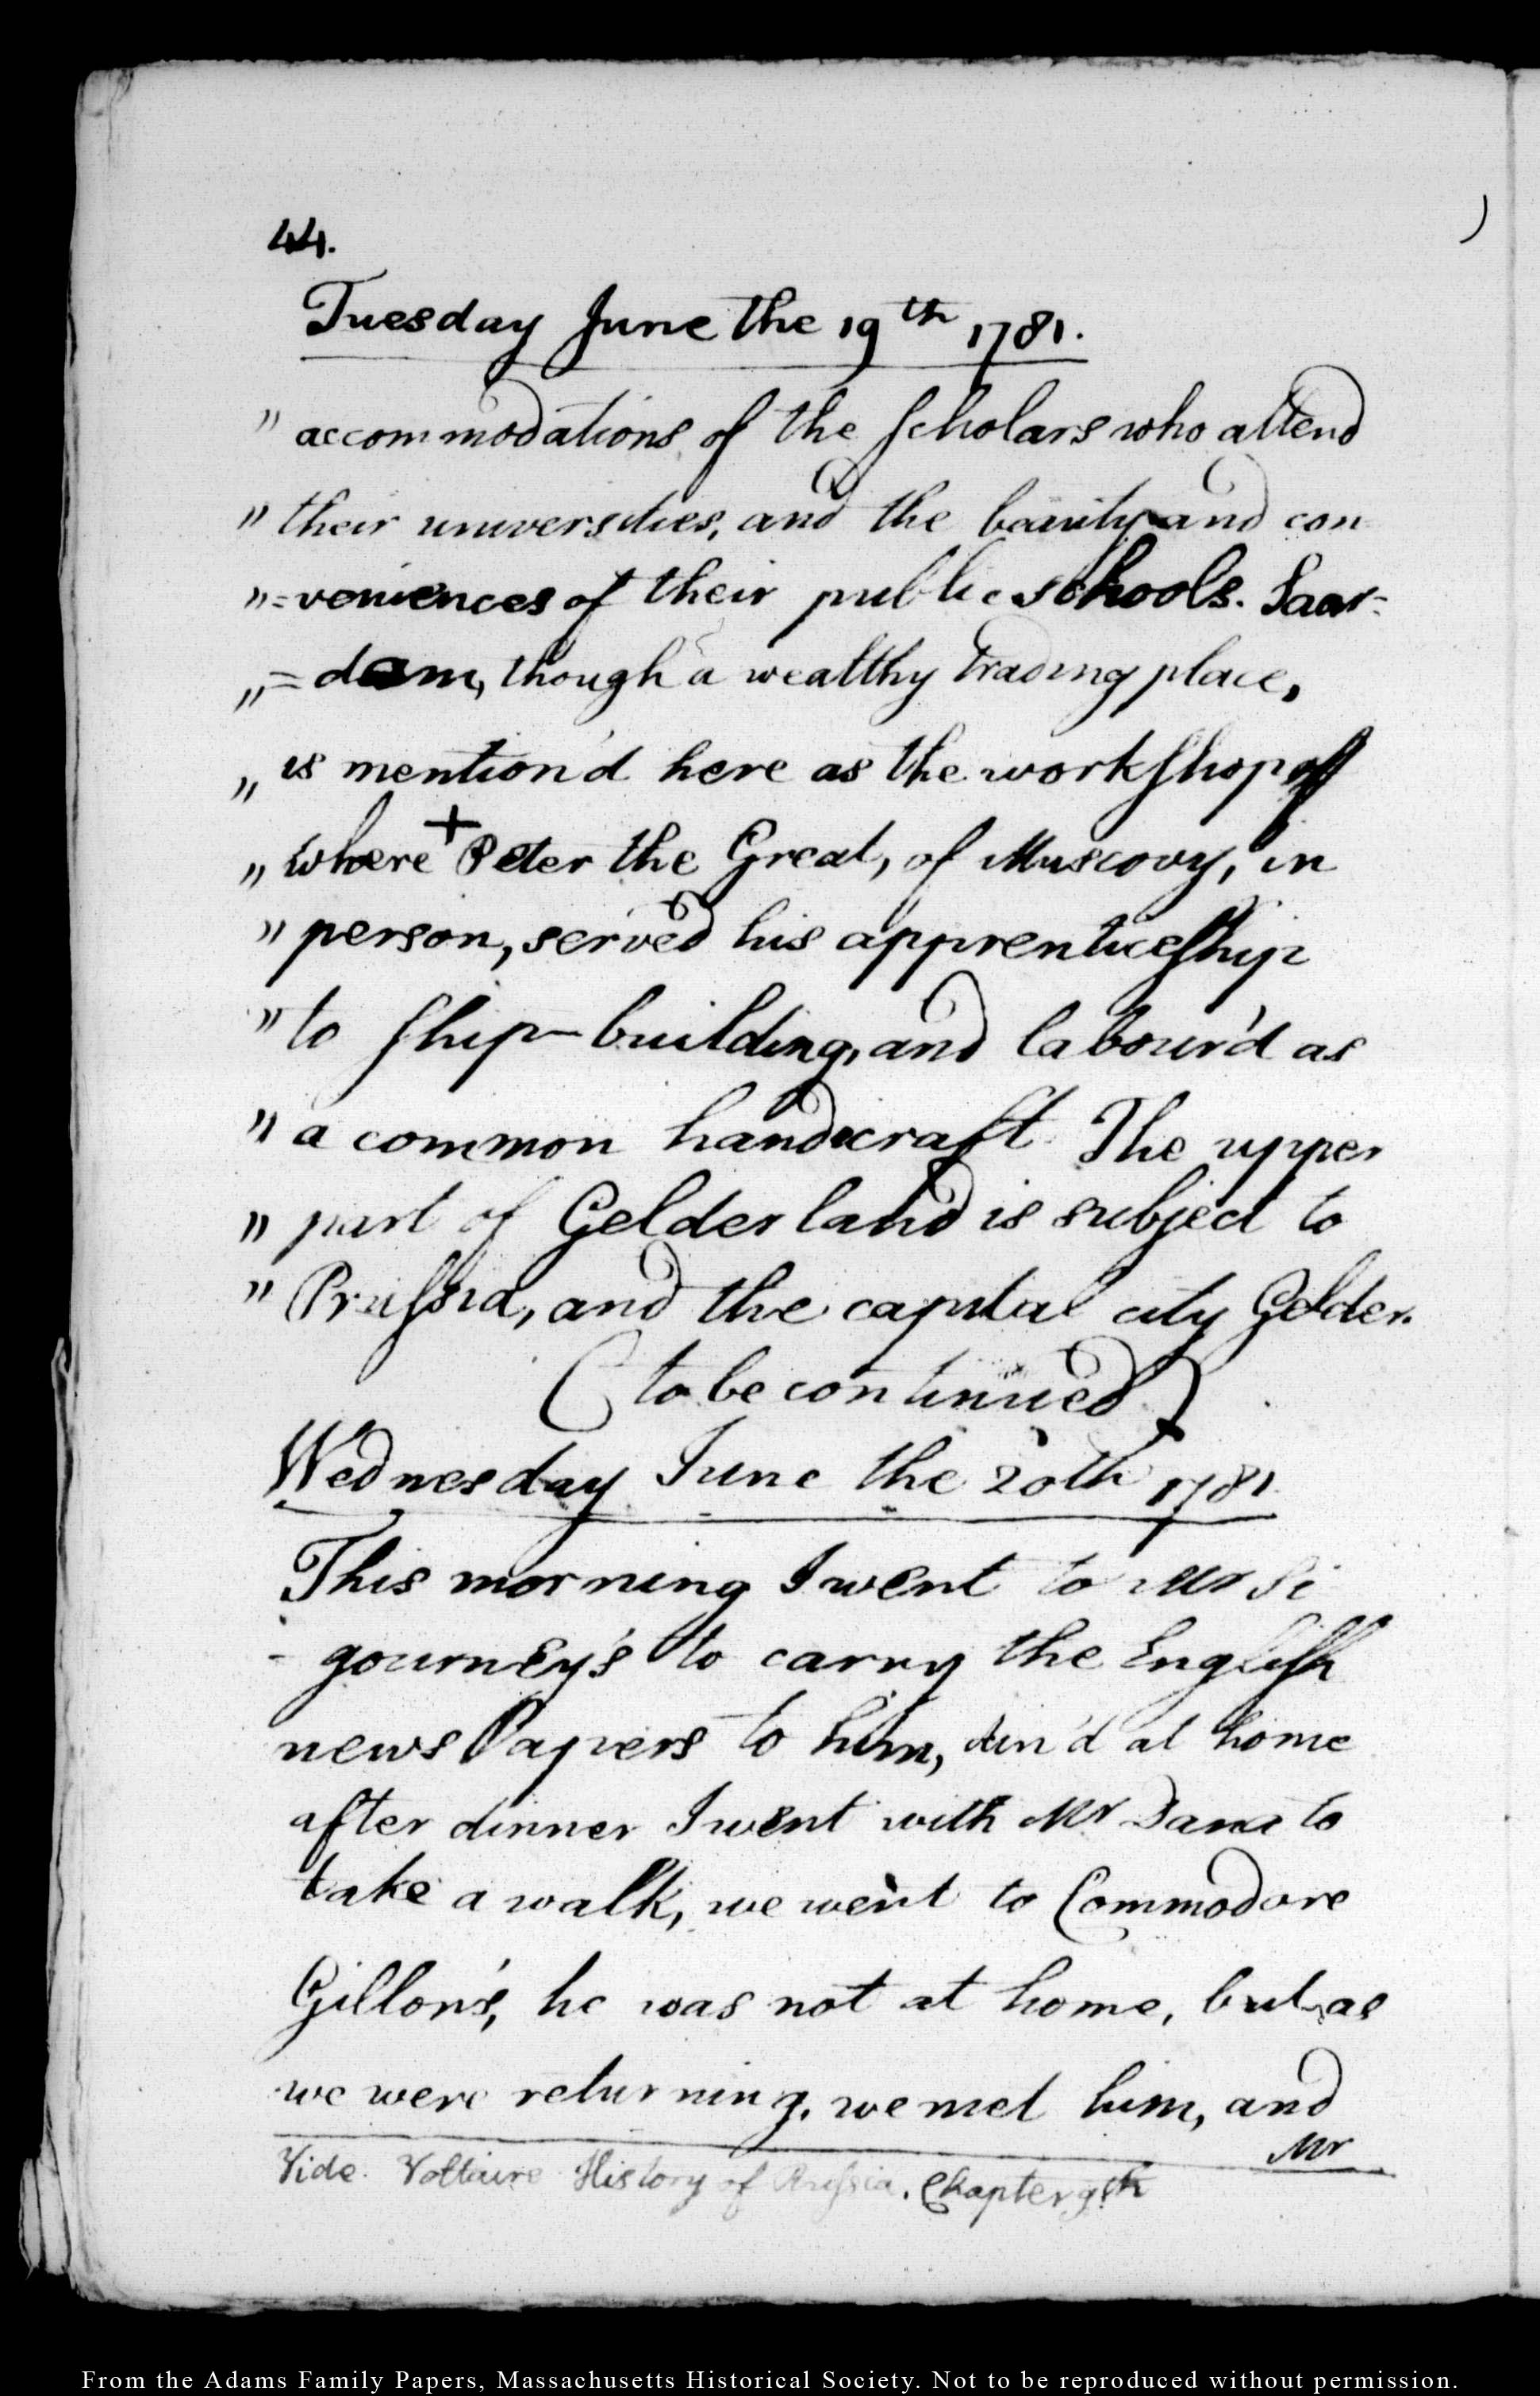 44.
Tuesday June the 19th 1781.
" accommodations of the scholars who attend
" their universities, and the beauty and con
" =veniences of their public schools. Saar=
" =dam, though a wealthy trading place,
" is mention'd here as the workshop of
" where + Peter the Great, of Muscovy, in
" person, served his apprenticeship
" to ship-building, and labour'd as
" a common handicraft. The upper
" part of Gelderland is subject to
" Prussia, and the capital city Gelder.
(to be continued)
Wednesday June the 20th 1781.
This morning I went to Mr Si
- gourney's to carry the English
news Papers to him, din'd at home
after dinner I went with Mr Dana to
take a walk, we went to Commodore
Gillon's, he was not at home, but as
we were returning, we met him, and
Mr
Vide. Voltaire History of Russia. Chapter 9th
From the Adams Family Papers, Massachusetts Historical Society. Not to be reproduced without permission.